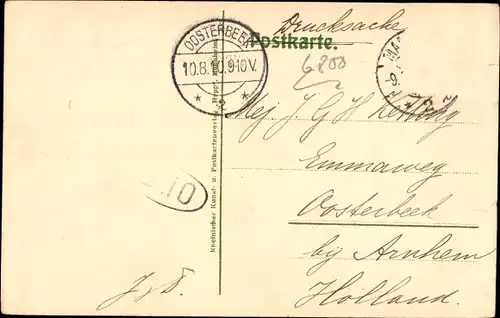 Drucksache
Postkarte.
OOSTERBEEK
10.8.10.9-10V.
* 2 *
6800
Mej. J G H
Emmaweg
Oosterbeek
bij Arnhem
Holland.
Rheinischer Kunst- u. Postkartenverlag